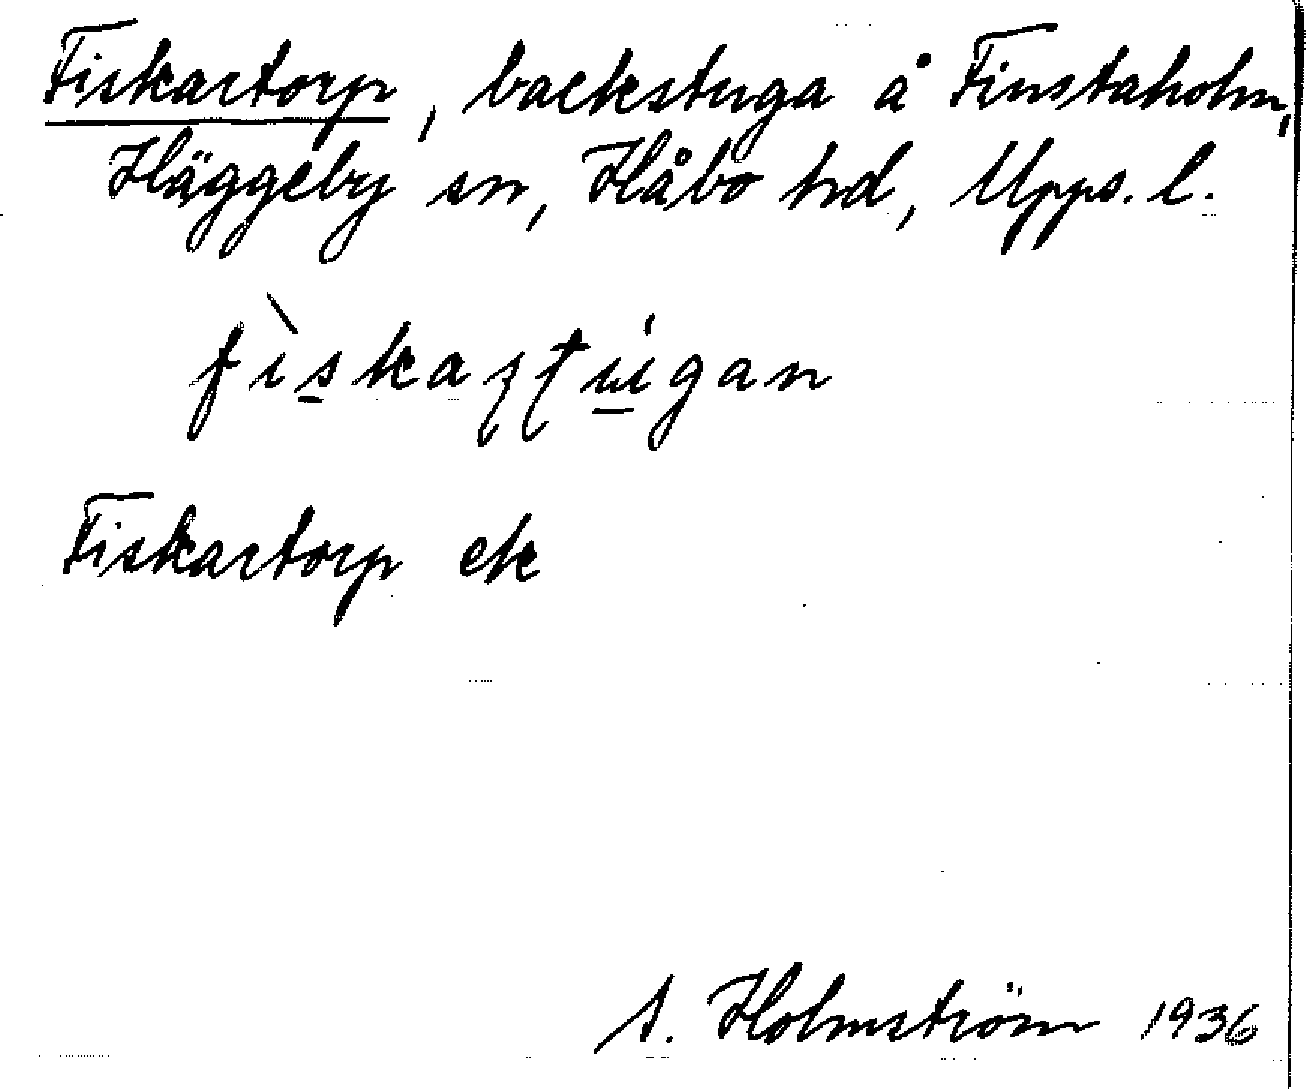 Fiskartorp, backstuga å Finstaholm,
Häggeby sn, Håbo hd, Upps. l.
fìskaʂʈúgan
Fiskartorp ek
A. Holmström 1936